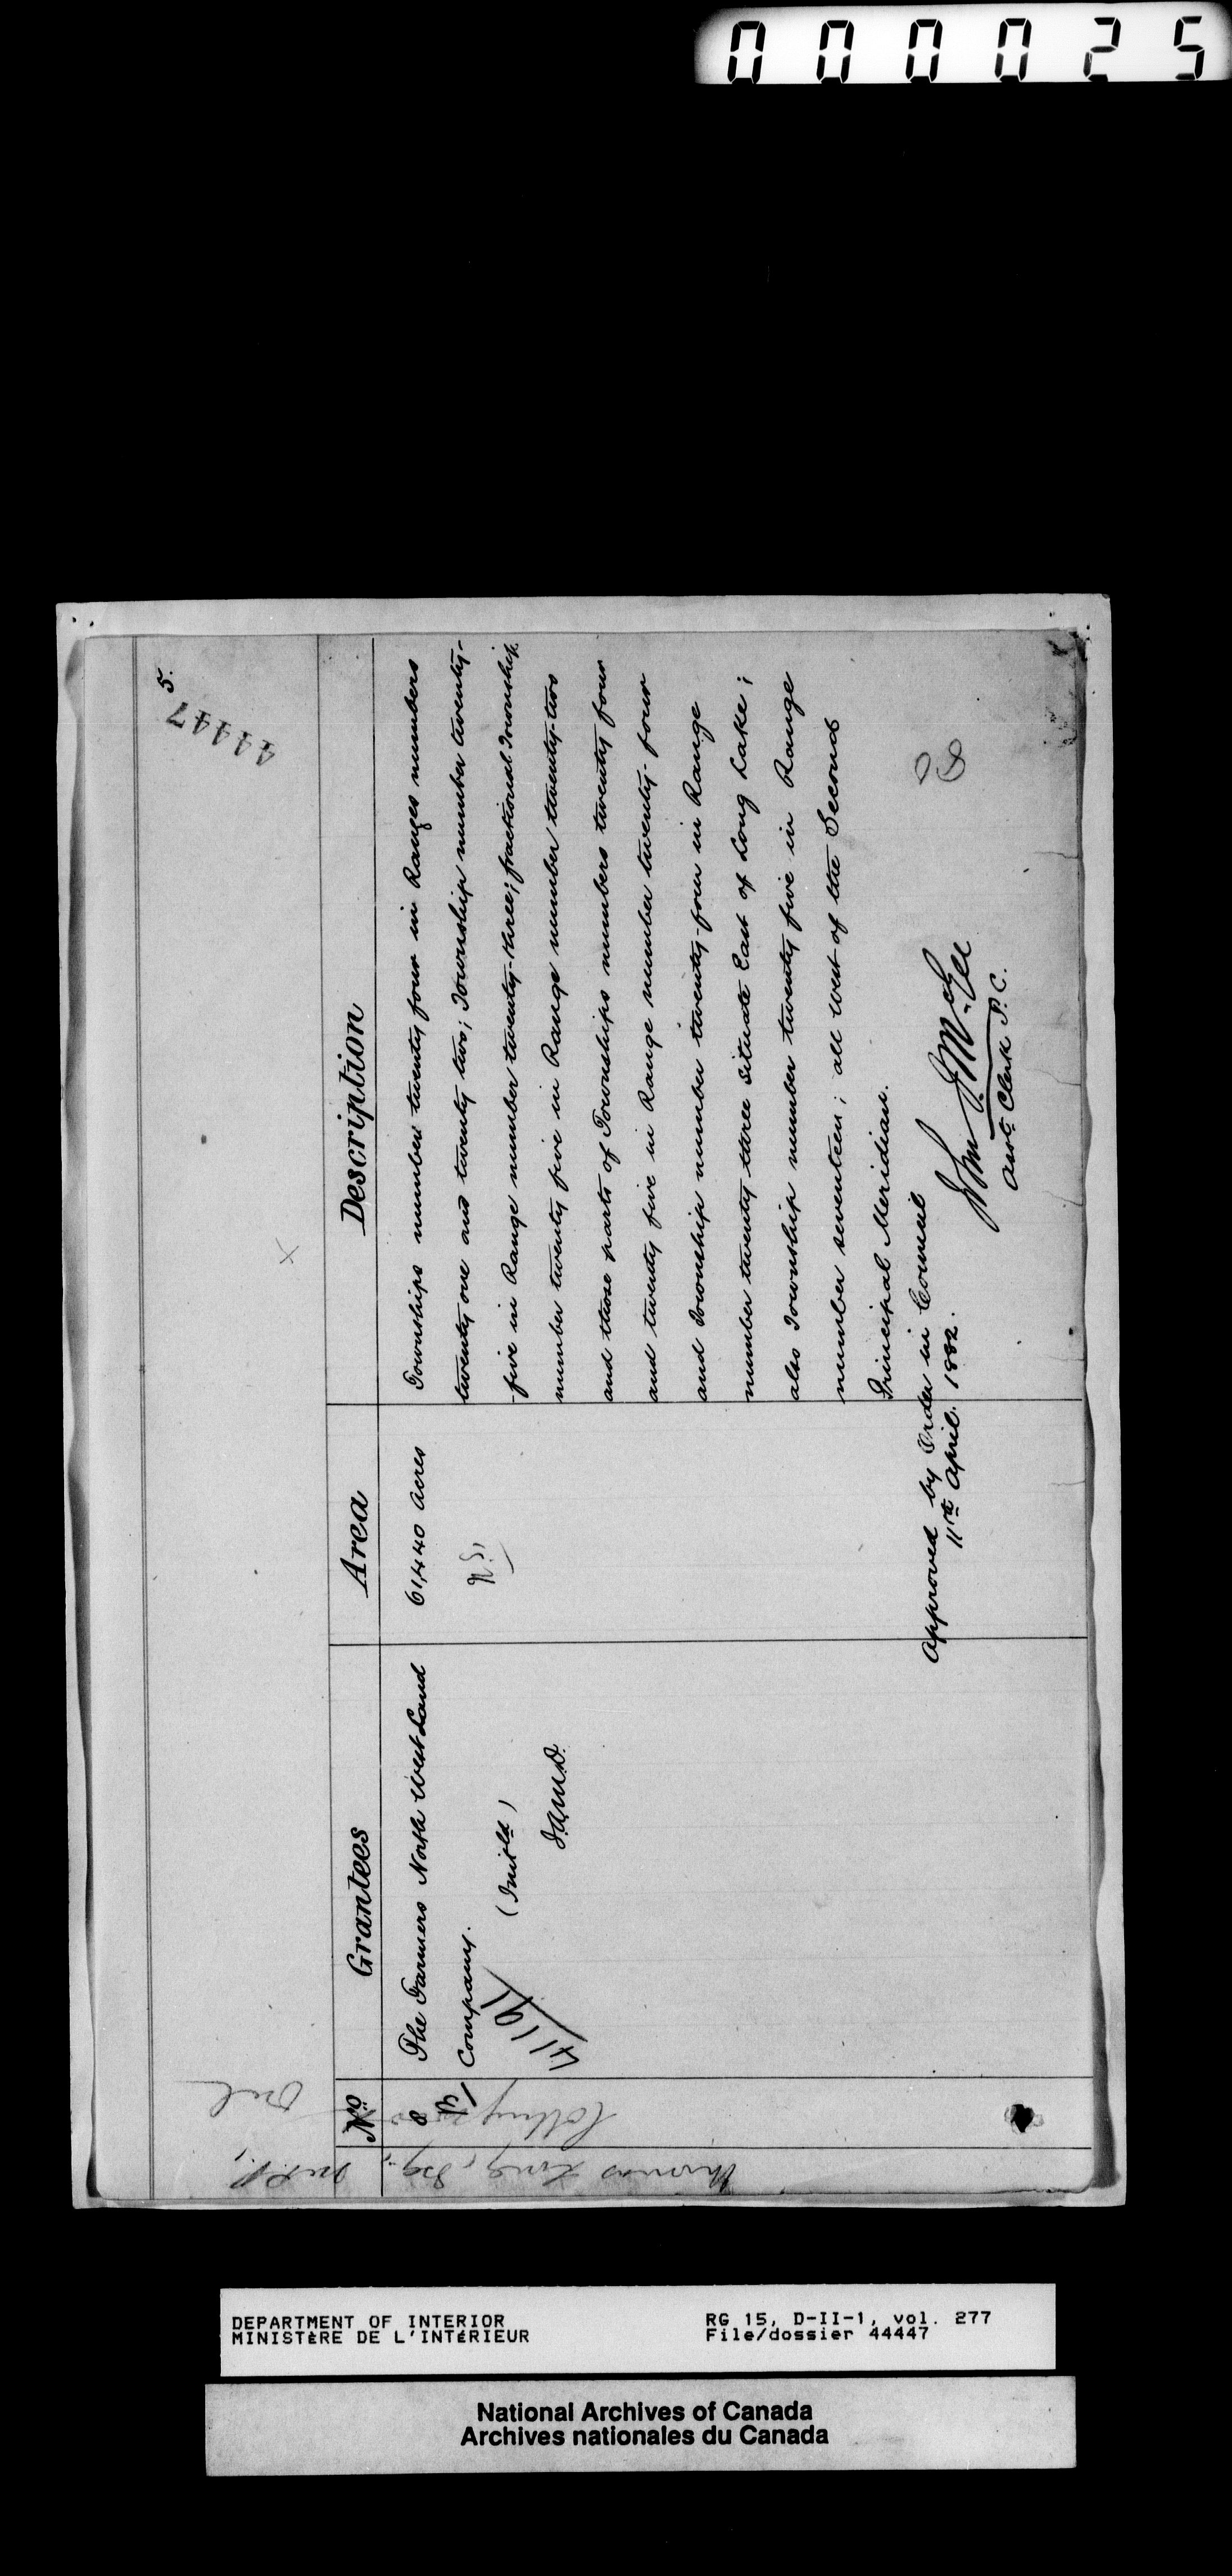 000025
44447
5.
No
Grantees
Area
Description
8
The Farmers North West Land
Company.
(Init'ld)
J.A.McD.
41191
61,440 acres
Townships number twenty four in Ranges numbers
twenty one and twenty two; Township number twenty-
-five in Range number twenty-three; fractional Township
number twenty five in Range number twenty-two
and those parts of Townships numbers twenty four
and twenty five in Range number twenty-four
and Township number twenty-four in Range
number twenty three situate East of Long Lake;
also Township number twenty five in Range
number seventeen; all west of the Second
Principal Meridian.
Approved by Order in Council
11th April. 1882.
John J. McGee
Asst. Clerk P.C.
Thomas Long, Esq.,
DEPARTMENT OF INTERIOR
MINISTÈRE DE L'INTÉRIEUR
RG 15, D-II-1, vol. 277
File/dossier 44447
National Archives of Canada
Archives nationales du Canada